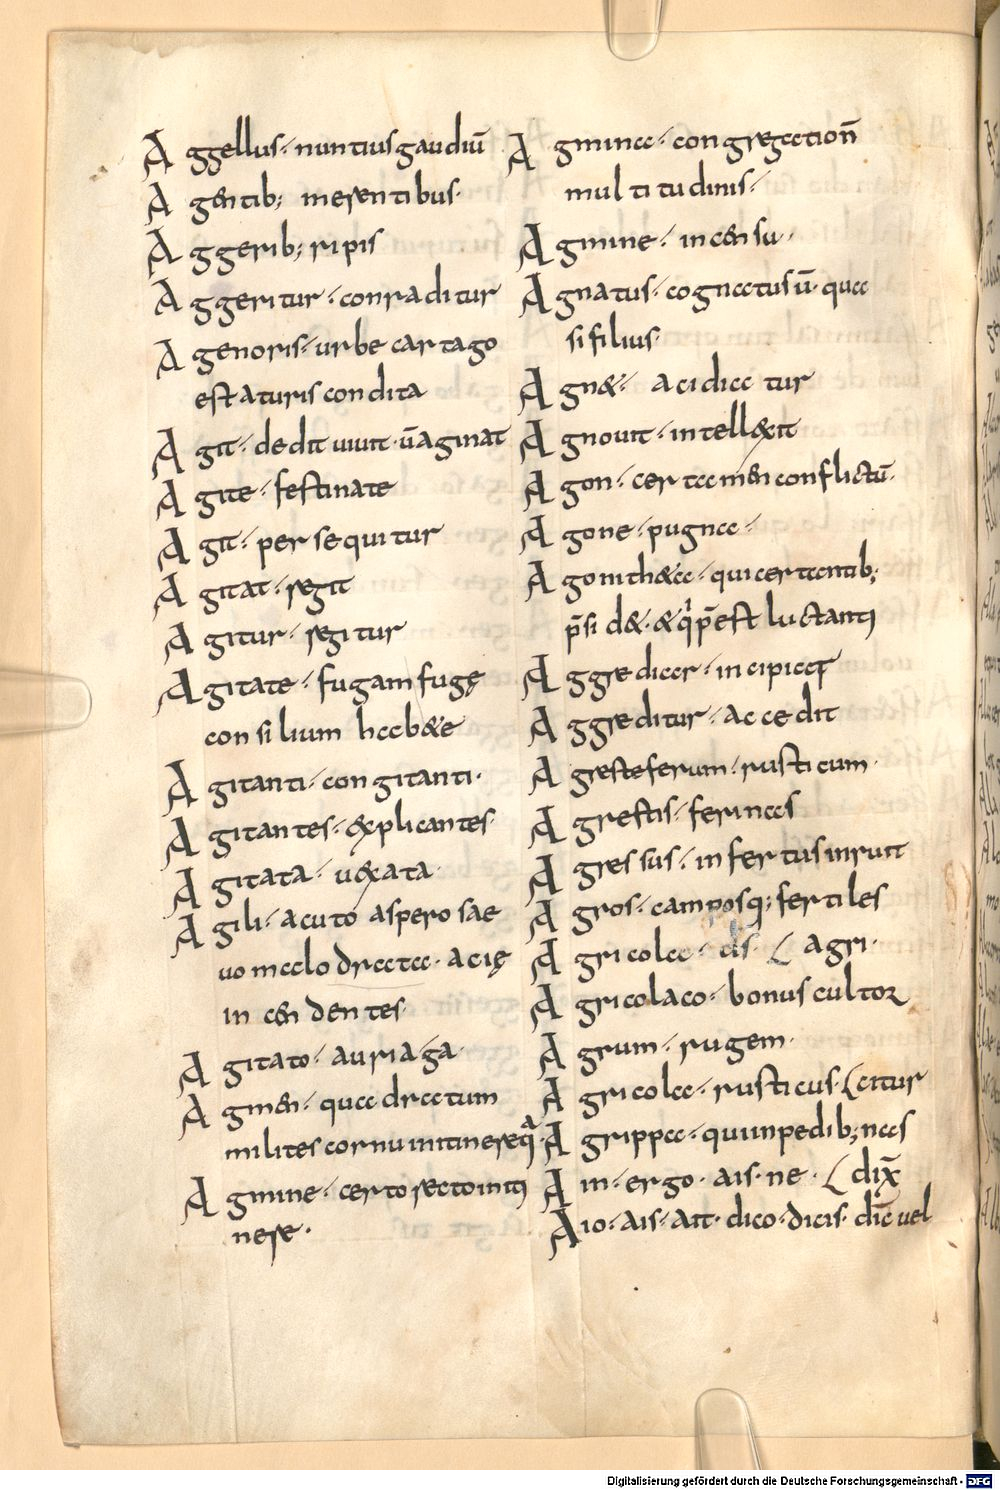 Aggellus· nuntius gaudiū
Agentib; merentibus·
Aggerib; ripis
Aggeritur· conraditur
Agenoris· urbe cartago
est aturis condita
Agit· dedit uiuit· ūaginat
Agite· festinate
Agit· persequitur
Agitat· regit
Agitur· regitur
Agitate· fugam fugę
consilium hab&e
Agitanti· congitanti·
Agitantes· explicantes·
Agitata· uexata·
Agili· acuto aspero sae
uo malo dracta· acię
in cendentes·
Agitato· auriaga·
Agmen· quae dractum
milites cornu initinere
Agmine· certo recto
nere·
Agmina· congregation̄
multitudinis·
Agmine· incensu·
Agnatus· cognatus ū· qua
si filius·
Agn&· acidica tur
Agnouit· intell&xit
Agon· certamen conflictū·
Agone· pugna·
Agonith&a· qui certantib;
p̄si d&· & p̄est luctanti
Aggredicer· incipiaer
Aggreditur· accedit
Agresteferum· rusticum·
Agrestis· ferinas
Agressus· infertus inruit
Agros· camposq; fertiles
Agricola· agri·
Agricolaco· bonus cultor
Agrum· rugem·
Agricola· rusticus·
Agrippa· qui inpedib; nas
Ain· ergo· ais· ne· dix̄
Aio· ais· ait· dico· dicis· dic̄ uel
Digitalisierung gefördert durch die Deutsche Forschungsgemeinschaft - DFG